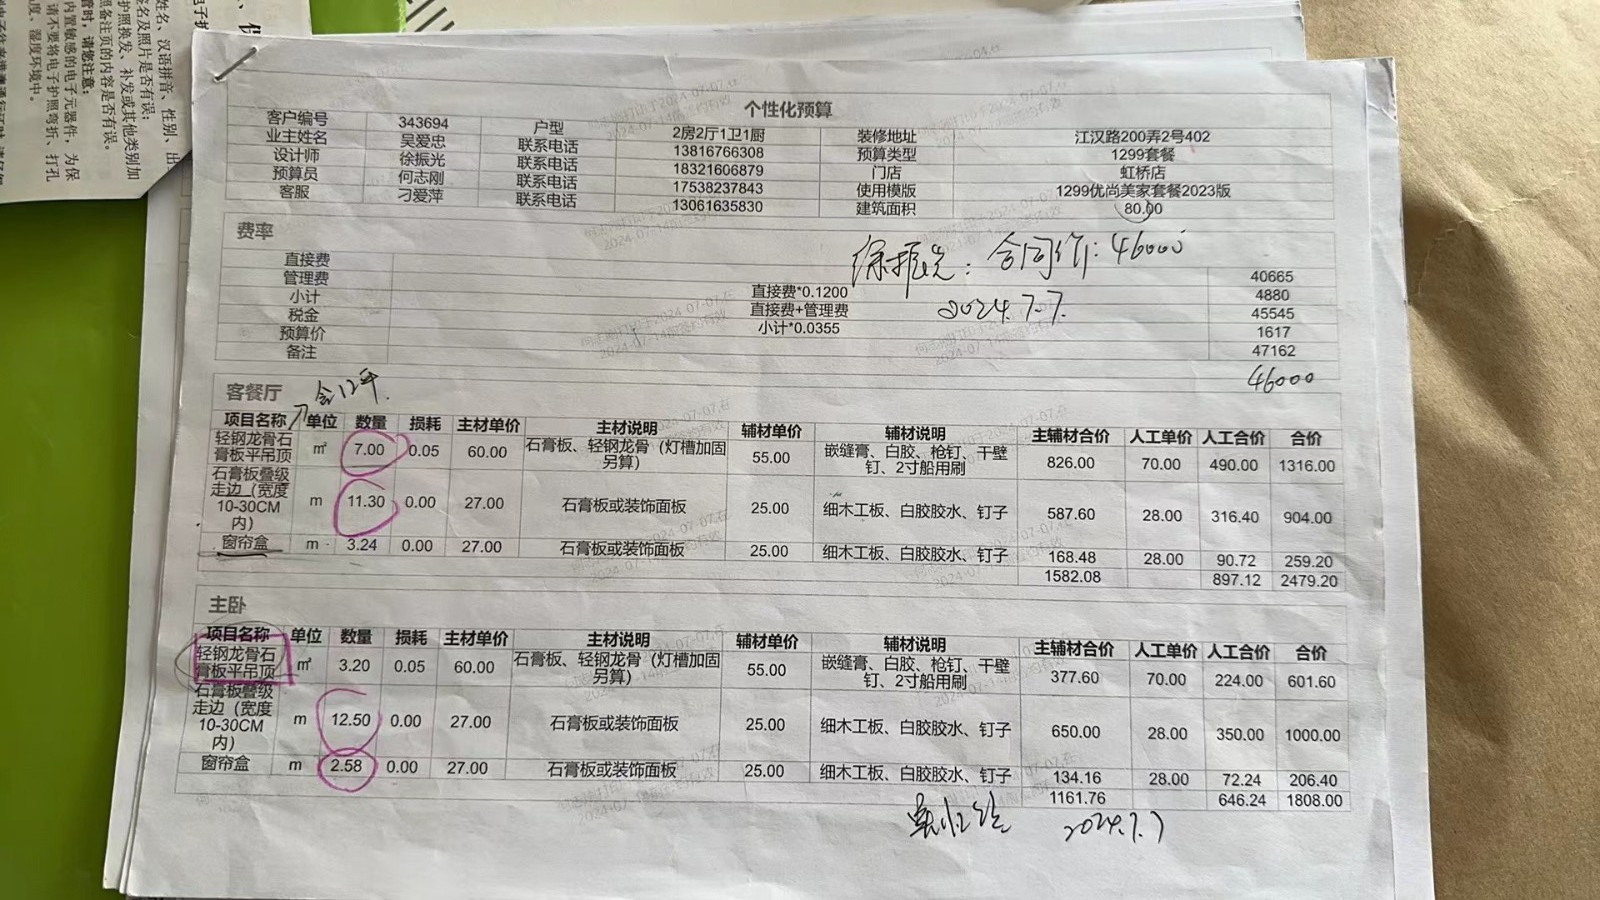 姓名、汉语拼音、性别、出
签名及照片是否有误;
护照换发、补发或其他类别加
照备注页的内容是否有误。
管时,请您注意:
内置敏感的电子元器件,为保
请不要将电子护照弯折、打孔
度、湿度环境中。
个性化预算
客户编号 343694 户型 2房2厅1卫1厨 装修地址 江汉路200弄2号402
业主姓名 吴爱忠 联系电话 13816766308 预算类型 1299套餐
设计师 徐振光 联系电话 18321606879 门店 虹桥店
预算员 何志刚 联系电话 17538237843 使用模版 1299优尚美家套餐2023版
客服 刁爱萍 联系电话 13061635830 建筑面积 80.00
费率
徐振光:合同价:46000
2024.7.7.
直接费 40665
管理费 直接费*0.1200 4880
小计 直接费+管理费 45545
税金 小计*0.0355 1617
预算价 47162
备注
46000
客餐厅
含12平.
项目名称 单位 数量 损耗 主材单价 主材说明 辅材单价 辅材说明 主辅材合价 人工单价 人工合价 合价
轻钢龙骨石膏板平吊顶 ㎡ 7.00 0.05 60.00 石膏板、轻钢龙骨(灯槽加固另算) 55.00 嵌缝膏、白胶、枪钉、干壁钉、2寸船用刷 826.00 70.00 490.00 1316.00
石膏板叠级走边(宽度10-30CM内) m 11.30 0.00 27.00 石膏板或装饰面板 25.00 细木工板、白胶胶水、钉子 587.60 28.00 316.40 904.00
窗帘盒 m 3.24 0.00 27.00 石膏板或装饰面板 25.00 细木工板、白胶胶水、钉子 168.48 28.00 90.72 259.20
1582.08 897.12 2479.20
主卧
项目名称 单位 数量 损耗 主材单价 主材说明 辅材单价 辅材说明 主辅材合价 人工单价 人工合价 合价
轻钢龙骨石膏板平吊顶 ㎡ 3.20 0.05 60.00 石膏板、轻钢龙骨(灯槽加固另算) 55.00 嵌缝膏、白胶、枪钉、干壁钉、2寸船用刷 377.60 70.00 224.00 601.60
石膏板叠级走边(宽度10-30CM内) m 12.50 0.00 27.00 石膏板或装饰面板 25.00 细木工板、白胶胶水、钉子 650.00 28.00 350.00 1000.00
窗帘盒 m 2.58 0.00 27.00 石膏板或装饰面板 25.00 细木工板、白胶胶水、钉子 134.16 28.00 72.24 206.40
1161.76 646.24 1808.00
2024.7.7